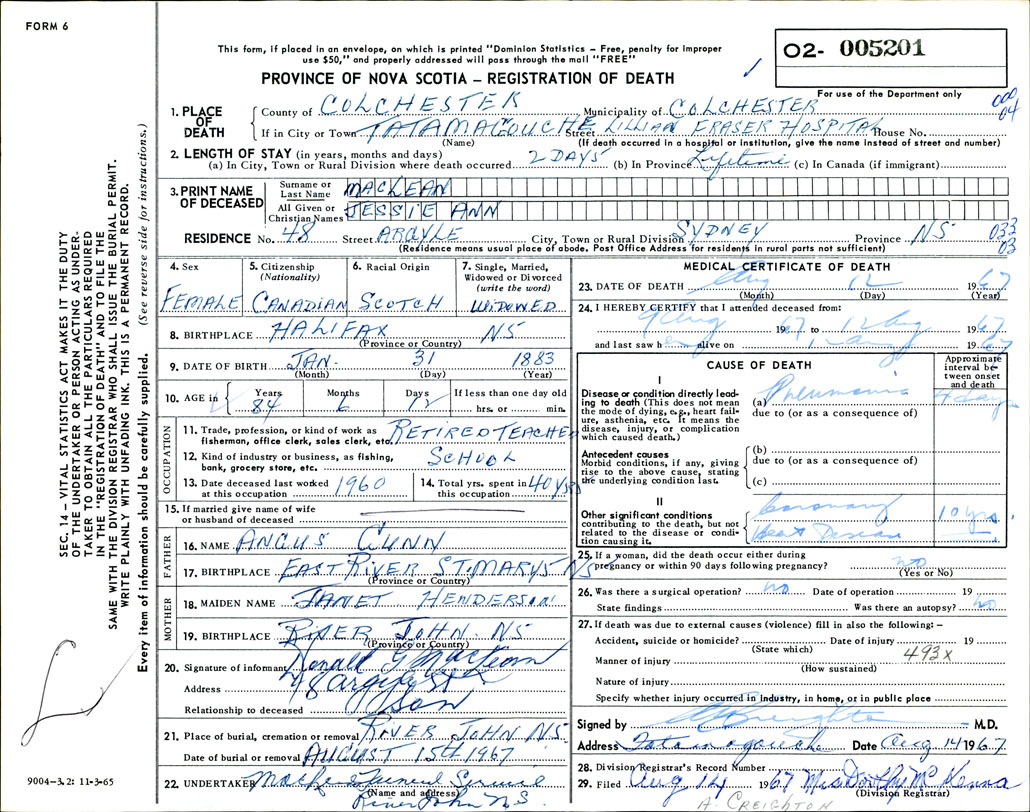 FORM 6
This form, if placed in an envelope, on which is printed "Dominion Statistics – Free, penalty for improper
use $50," and properly addressed will pass through the mail "FREE"
PROVINCE OF NOVA SCOTIA – REGISTRATION OF DEATH
02- 005201
For use of the Department only
000
04
1. PLACE OF DEATH
County of COLCHESTER Municipality of COLCHESTER
If in City or Town TATAMAGOUCHE Street LILLIAN FRASER HOSPITAL House No.
(Name) (If death occurred in a hospital or institution, give the name instead of street and number)
2. LENGTH OF STAY (in years, months and days)
(a) In City, Town or Rural Division where death occurred 2 DAYS (b) In Province Lifetime (c) In Canada (if immigrant)
3. PRINT NAME OF DECEASED
Surname or Last Name MACLEAN
All Given or Christian Names JESSIE ANN
RESIDENCE No. 48 Street ARGYLE City, Town or Rural Division SYDNEY Province NS
033
03
(Residence means usual place of abode. Post Office Address for residents in rural parts not sufficient)
4. Sex
FEMALE
5. Citizenship
(Nationality)
CANADIAN
6. Racial Origin
SCOTCH
7. Single, Married,
Widowed or Divorced
(write the word)
WIDOWED
8. BIRTHPLACE HALIFAX NS
(Province or Country)
9. DATE OF BIRTH JAN. 31 1883
(Month) (Day) (Year)
10. AGE in Years Months Days If less than one day old
84 6 12 hrs. or min.
OCCUPATION
11. Trade, profession, or kind of work as
fisherman, office clerk, sales clerk, etc. RETIRED TEACHER
12. Kind of industry or business, as fishing,
bank, grocery store, etc. SCHOOL
13. Date deceased last worked
at this occupation 1960
14. Total yrs. spent in
this occupation 40 yrs
15. If married give name of wife
or husband of deceased
FATHER
16. NAME ANGUS GUNN
17. BIRTHPLACE EAST RIVER ST. MARYS NS
(Province or Country)
MOTHER
18. MAIDEN NAME JANET HENDERSON
19. BIRTHPLACE RIVER JOHN NS
(Province or Country)
20. Signature of informant Donald G MacLean
Address 48 Argyle St
Relationship to deceased Son
21. Place of burial, cremation or removal RIVER JOHN NS.
Date of burial or removal AUGUST 15TH 1967
22. UNDERTAKER Funeral Service
(Name and address)
River John N.S.
MEDICAL CERTIFICATE OF DEATH
23. DATE OF DEATH Aug 12 1967
(Month) (Day) (Year)
24. I HEREBY CERTIFY that I attended deceased from:
9 Aug 1967 to 12 Aug 1967
and last saw h er alive on Aug 1967
CAUSE OF DEATH
Approximate
interval be-
tween onset
and death
I
Disease or condition directly lead-
ing to death (This does not mean
the mode of dying, e.g., heart fail-
ure, asthenia, etc. It means the
disease, injury, or complication
which caused death.)
(a) Pneumonia 4 days
due to (or as a consequence of)
Antecedent causes
Morbid conditions, if any, giving
rise to the above cause, stating
the underlying condition last.
(b)
due to (or as a consequence of)
(c)
II
Other significant conditions
contributing to the death, but not
related to the disease or condi-
tion causing it.
Coronary 10 yrs.
Heart Disease
25. If a woman, did the death occur either during
pregnancy or within 90 days following pregnancy? no
(Yes or No)
26. Was there a surgical operation? no Date of operation 19
State findings Was there an autopsy? no
27. If death was due to external causes (violence) fill in also the following: –
Accident, suicide or homicide? Date of injury 19
(State which) 493x
Manner of injury
(How sustained)
Nature of injury
Specify whether injury occurred in industry, in home, or in public place
Signed by Creighton – M.D.
Address Tatamagouche Date Aug 14 1967
28. Division Registrar's Record Number
29. Filed Aug 14 1967 Miss Dorothy McKenna
(Division Registrar)
A. CREIGHTON
SEC. 14 – VITAL STATISTICS ACT MAKES IT THE DUTY
OF THE UNDERTAKER OR PERSON ACTING AS UNDER-
TAKER TO OBTAIN ALL THE PARTICULARS REQUIRED
IN THE "REGISTRATION OF DEATH" AND TO FILE THE
SAME WITH THE DIVISION REGISTRAR WHO SHALL ISSUE THE BURIAL PERMIT.
WRITE PLAINLY WITH UNFADING INK. THIS IS A PERMANENT RECORD.
Every item of information should be carefully supplied. (See reverse side for instructions.)
9004-3.2: 11-3-65